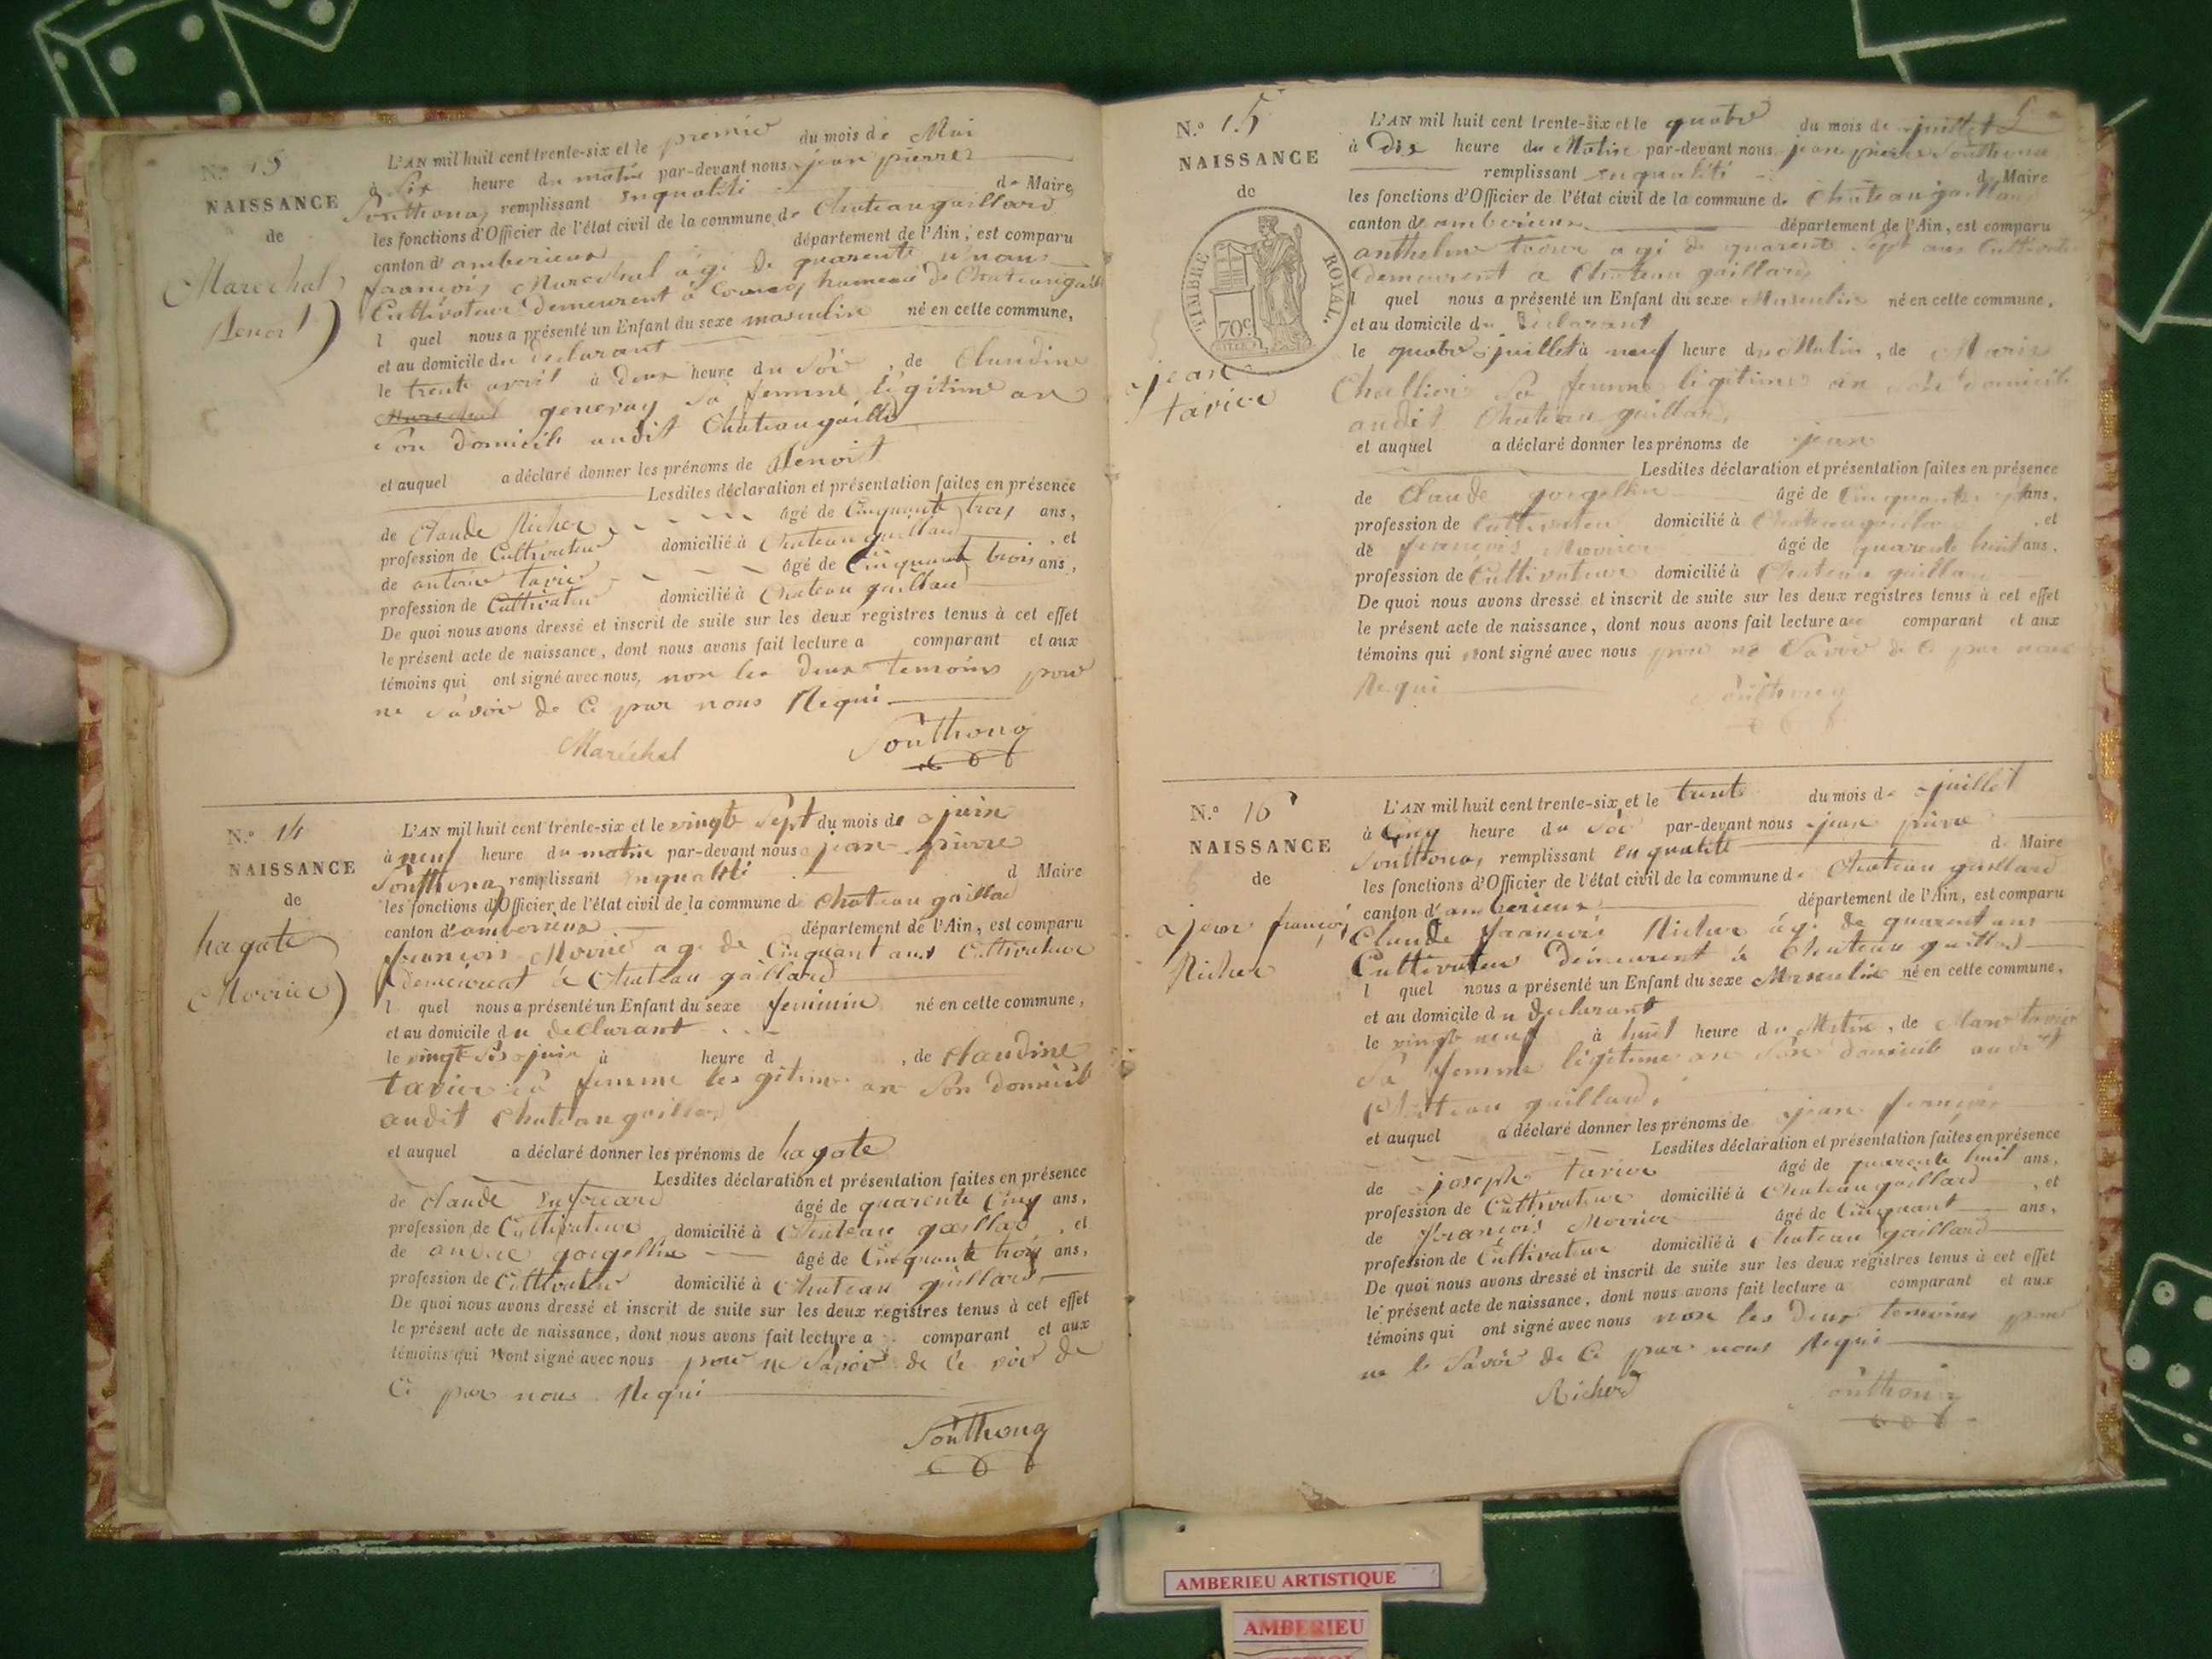 N.o 13
NAISSANCE
de
Marechal
Benoit
L'AN mil huit cent trente-six et le premie du mois de Mai
à Six heure du matin par-devant nous jean pierre
Southonax remplissant enqualité de Maire
les fonctions d'Officier de l'état civil de la commune de Chateaugaillard
canton d'amberieux département de l'Ain, est comparu
francois Marechal agé de quarente
Cultivateur demeurent à hameau de Chateaugaill
l quel nous a présenté un Enfant du sexe masculin né en cette commune,
et au domicile du declarant
le trente avril à deux heure du Soir, de Claudine
genevay sa femme légitime an
Son domicile audit Chateaugailld
et auquel a déclaré donner les prénoms de Benoit
Lesdites déclaration et présentation faites en présence
de Claude Richer âgé de Cinquante trois ans,
profession de Cultivateur domicilié à Chateau gaillard, et
de antoine tavier âgé de Cinquante trois ans,
profession de Cultivateu domicilié à Chateau gaillard
De quoi nous avons dressé et inscrit de suite sur les deux registres tenus à cet effet
le présent acte de naissance, dont nous avons fait lecture a comparant et aux
témoins qui ont signé avec nous, non les deux temoins pour
ne savoir de Ce par nous Requi
Maréchal Southonax
N.o 14
NAISSANCE
de
hagate
Movrier
L'AN mil huit cent trente-six et le vingt Sept du mois de juin
à neuf heure du matin par-devant nous jean pierre
Southonax remplissant enqualité d Maire
les fonctions d'Officier de l'état civil de la commune d Chateau gaillad
canton d'amberieux département de l'Ain, est comparu
francois Movrie agé de Cinquant ans Cultivateur
demeurent à Chateau gaillard
l quel nous a présenté un Enfant du sexe feminin né en cette commune,
et au domicile du declarant
le vingt six juin à heure d, de Claudine
tavier sa femme les gitime an Son domicile
audit Chateau gaillard
et auquel a déclaré donner les prénoms de hagate
Lesdites déclaration et présentation faites en présence
de Claude âgé de quarente Cinq ans,
profession de Cultivateur domicilié à Chateau gaillad, et
de andre gorgellin âgé de Cinquante trois ans,
profession de Cultivateu domicilié à Chateau gaillard
De quoi nous avons dressé et inscrit de suite sur les deux registres tenus à cet effet
le présent acte de naissance, dont nous avons fait lecture a comparant et aux
témoins qui nont signé avec nous pour ne Savoir de
Ce par nous Requi
Southonax
N.o 15
NAISSANCE
de
TIMBRE ROYAL.
70c
jean
tavier
L'AN mil huit cent trente-six et le quatre du mois de juillet 5
à Dix heure du Matin par-devant nous jean pierre Southonax
remplissant enqualité d Maire
les fonctions d'Officier de l'état civil de la commune de Chateaugaillard
canton de amberieux département de l'Ain, est comparu
anthelme tavier agé de quarente Sept ans Cultivate
demeurent a Chateau gaillard
l quel nous a présenté un Enfant du sexe Masculin né en cette commune,
et au domicile du declarant
le quatre juillet à neuf heure du Matin, de Marie
Sa femme legitime an son domicile
audit Chateau gaillard,
et auquel a déclaré donner les prénoms de jean
Lesdites déclaration et présentation faites en présence
de Claude gorgellin âgé de Cinquante ans,
profession de Cultivateu domicilié à Chateaugaillar, et
de francois Movrier âgé de quarente huit ans,
profession de Cultivateur domicilié à Chateau gaillard
De quoi nous avons dressé et inscrit de suite sur les deux registres tenus à cet effet
le présent acte de naissance, dont nous avons fait lecture au comparant et aux
témoins qui nont signé avec nous pour ne Savoir de Ce par nous
Requi Southonax
N.o 16
NAISSANCE
de
jean françois
Richer
L'AN mil huit cent trente-six et le trente du mois de juillet
à Cinq heure du Soir par-devant nous jean pierre
Southonax remplissant enqualité d Maire
les fonctions d'Officier de l'état civil de la commune d Chateau gaillard
canton d'amberieux département de l'Ain, est comparu
Claude francois Richer agé de quarent ans
Cultivateur demeurent à Chateau gaillard
l quel nous a présenté un Enfant du sexe Masculin né en cette commune,
et au domicile du declarant
le vingt neuf à huit heure du Matin, de Marie tavier
Sa femme légitime an Son domicile audit
Chateau gaillard,
et auquel a déclaré donner les prénoms de jean françois
Lesdites déclaration et présentation faites en présence
de joseph tavier âgé de quarente huit ans,
profession de Cultivateur domicilié à Chateau gaillard, et
de françois Movrier âgé de Cinquant ans,
profession de Cultivateur domicilié à Chateau gaillard
De quoi nous avons dressé et inscrit de suite sur les deux registres tenus à cet effet
le présent acte de naissance, dont nous avons fait lecture a comparant et aux
témoins qui ont signé avec nous non les deux temoins pour
ne le Savoir de Ce par nous Requi
Richerd Southonax
AMBERIEU ARTISTIQUE
AMBERIEU